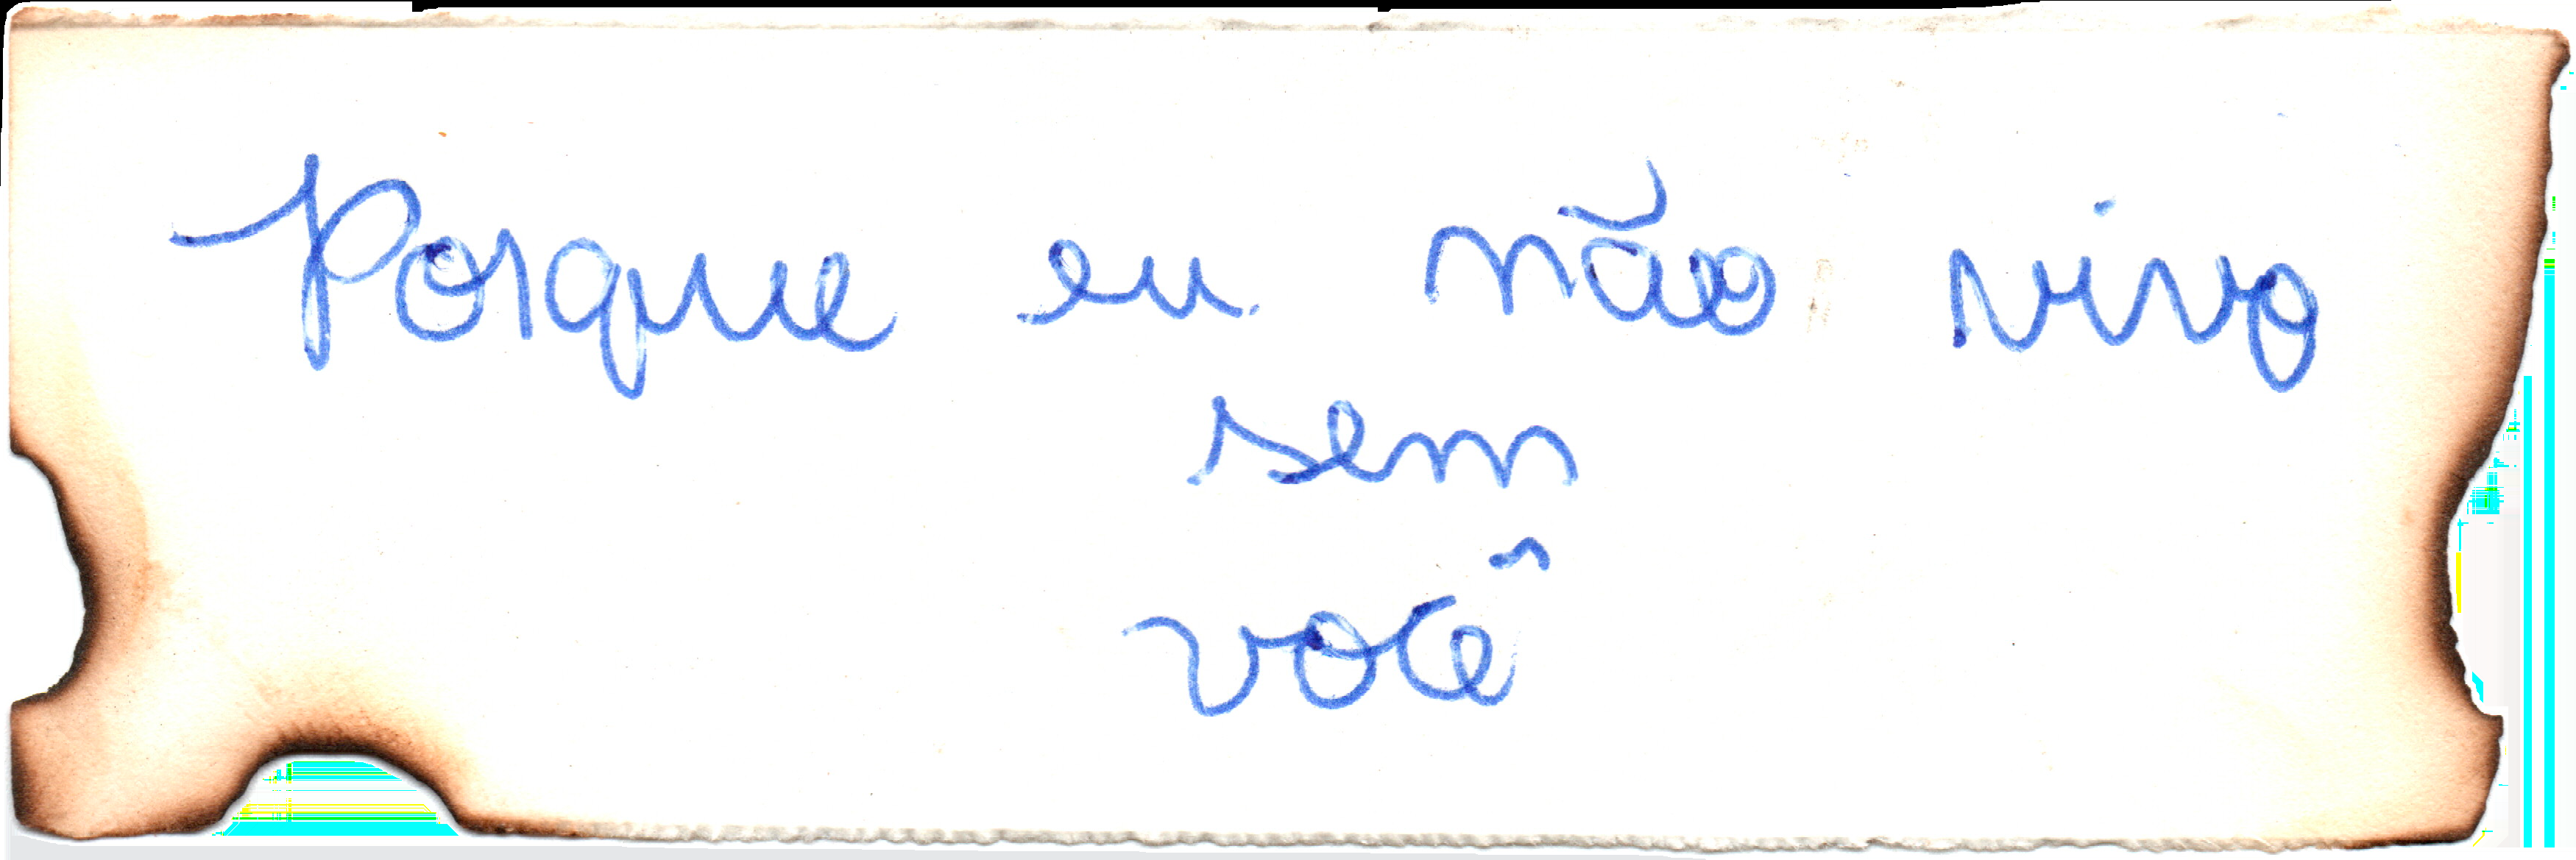 Porque eu não vivo
sem
você